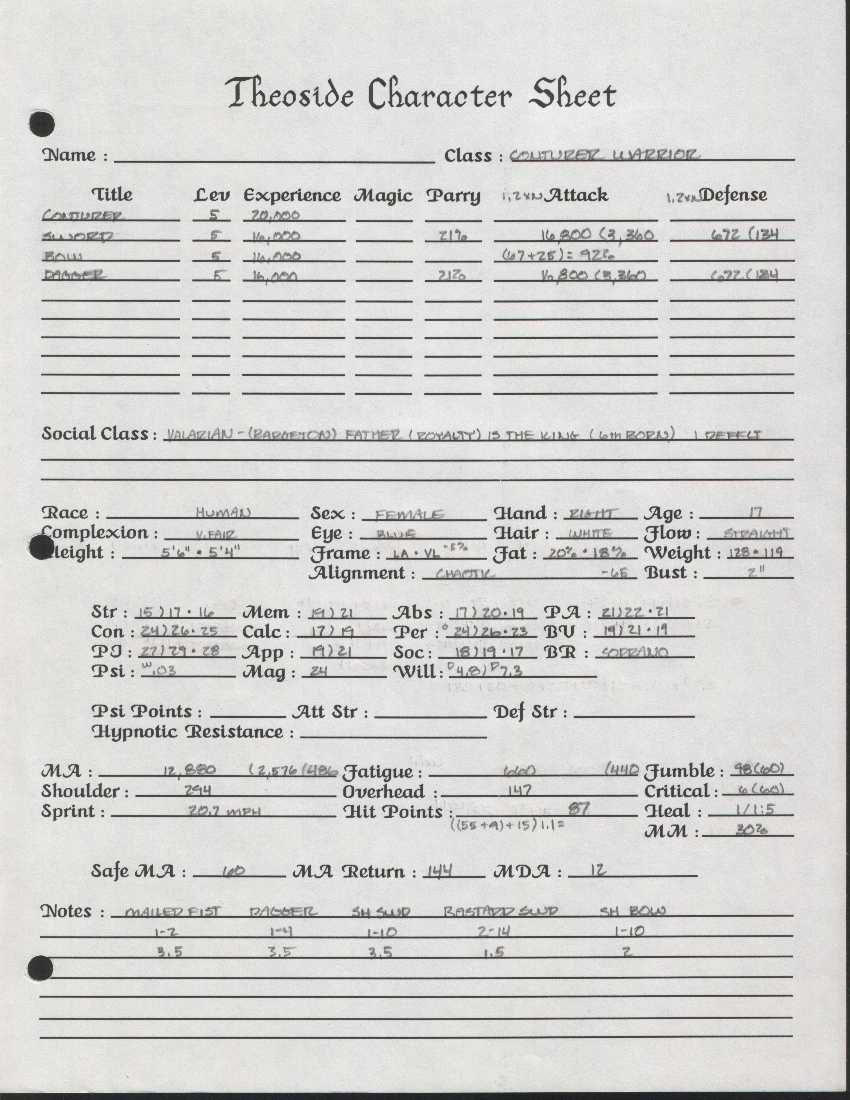 Theoside Character Sheet
Name : Class : CONTURER WARRIOR
Title Lev Experience Magic Parry 1.2xN Attack 1.2xN Defense
CONTURER 5 20,000
SWORD 5 16,000 21% 16,800 (3,360 672 (134
BOW 5 16,000 (67+25) = 92%
DAGGER 5 16,000 21% 16,800 (3,360) 672 (134
Social Class : VALARIAN - (BARGETON) FATHER (ROYALTY) IS THE KING (6th BORN) 1 DEFECT
Race : HUMAN Sex : FEMALE Hand : RIGHT Age : 17
Complexion : V.FAIR Eye : BLUE Hair : WHITE Flow : STRAIGHT
Height : 5'6" • 5'4" Frame : LA • VL -5% Fat : 20% • 18% Weight : 128 • 119
Alignment : CHAOTIC -65 Bust : 2"
Str : 15)17 • 16 Mem : 19)21 Abs : 17)20 • 19 PA : 21)22 • 21
Con : 24)26 • 25 Calc : 17)19 Per : 24)26 • 23 BV : 19)21 • 19
PI : 27)29 • 28 App : 19)21 Soc : 18)19 • 17 BR : SOPRANO
Psi : W.03 Mag : 24 Will : P4.8)P7.3
Psi Points : Att Str : Def Str :
Hypnotic Resistance :
MA : 12,880 (2,576/486 Fatigue : 660 (440 Fumble : 98(60)
Shoulder : 294 Overhead : 147 Critical : 6(60)
Sprint : 20.7 MPH Hit Points : 87 Heal : 1/1:5
((55+9)+15)1.1= MM : 30%
Safe MA : 60 MA Return : 144 MDA : 12
Notes : MAILED FIST DAGGER SH SWD BASTARD SWD SH BOW
1-2 1-4 1-10 2-14 1-10
3.5 3.5 3.5 1.5 2